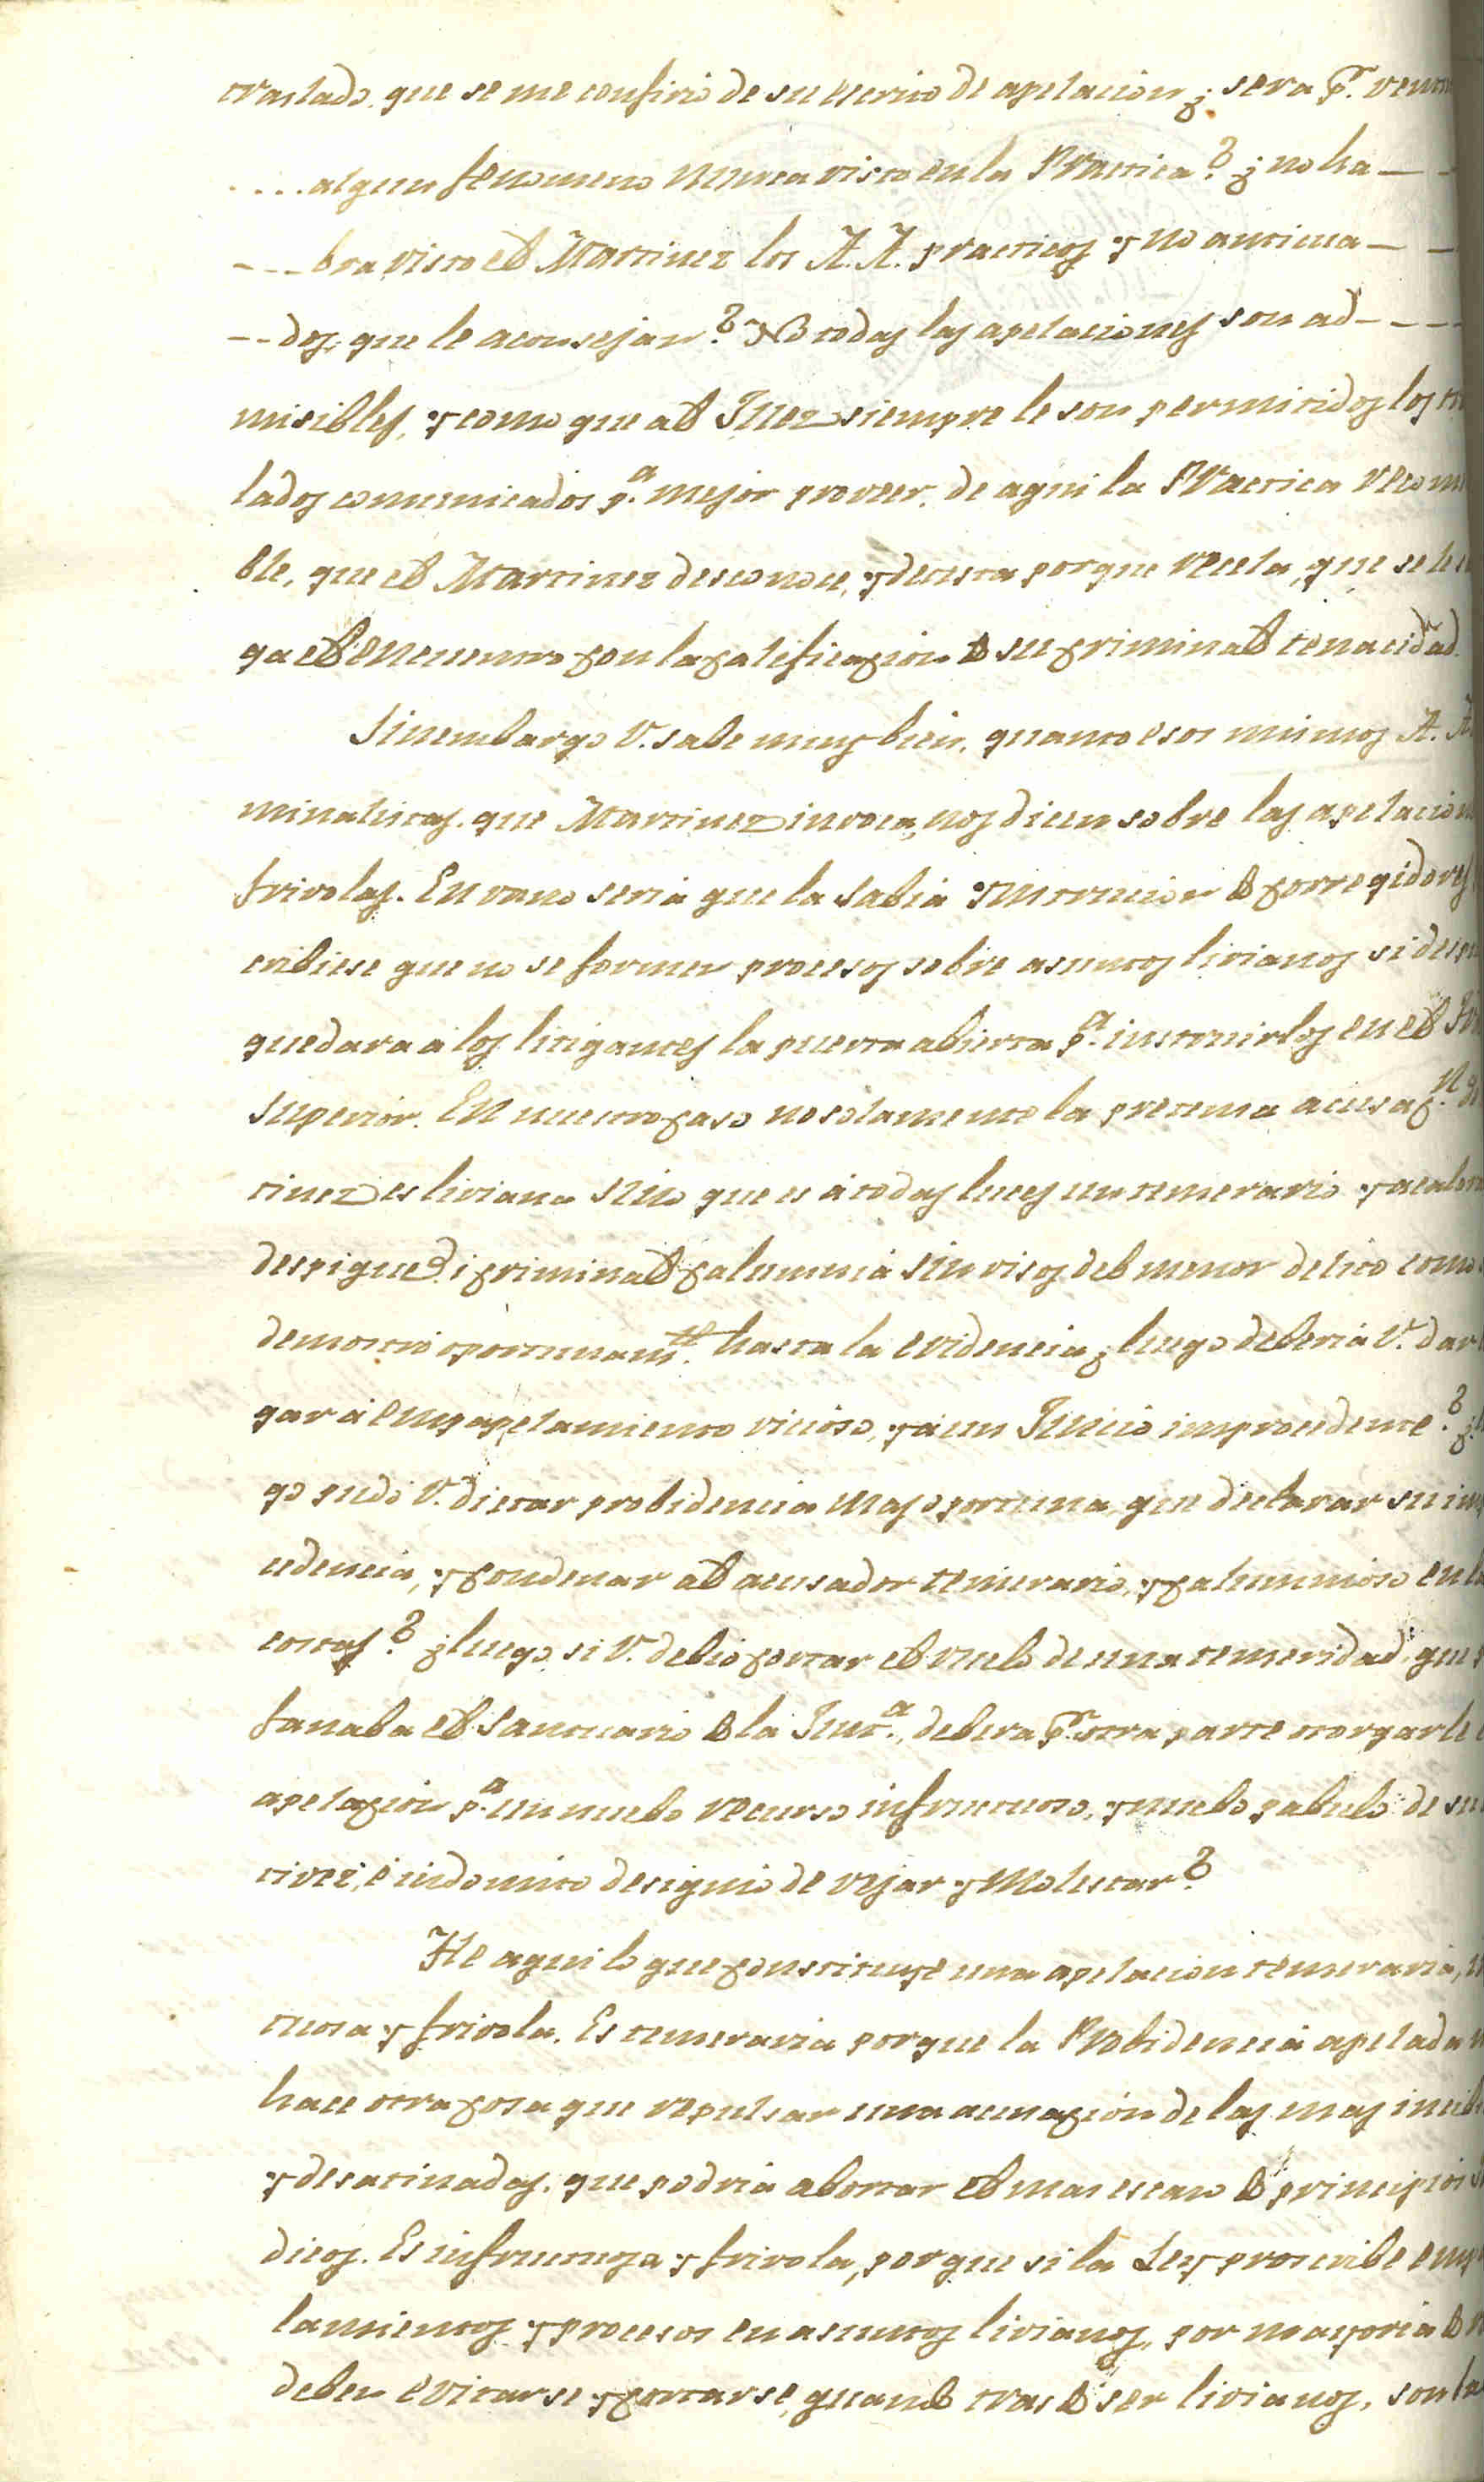 traslado, que se me confirio de su escrito de apelacion ¿sera pr. ventu
....algun fenomeno nunca visto en la Practica? ¿no ha--
---bra visto el Martinez los A.A. practicos y no anticua--
--dos, que le aconsejan? No todas las apelaciones son ad---
misibles, y como que al Juez siempre le son permitidos los
lados comunicados pa. mejor proveer, de aqui la Practica
ble, que el Martinez desconoce, y detesta porque recela, que se le
ga el encuentro con la calificacion de su criminal tenacidad.
Sinembargo V. sabe muy bien, quanto esos mismos A.A.
minalistas, que Martinez invoca, nos dicen sobre las apelacion
frivolas. En vano seria que la sabia Instruccion de Corregidores
cribiese que no se formen procesos sobre asuntos livianos si despu
quedara a los litigantes la puerta abierta pa. instruirlos en el
superior. En nuestro caso no solamente la pretensa acusacn. de
tinez es liviana sino que es á todas luces un temerario y acalora
despique, i criminal calumnia sin visos del menor delito como
demostró oportunamte. hasta la evidencia ¿luego deberiá V. dar
gar á empapelamiento vicioso, y á un Juicio improcedente? ¿
go pudo V. dictar probidencia mas oportuna, que declarar su im
cedencia, y condenar al acusador temerario, y calumnioso en la
costas? ¿luego, si V. debió cortar el vuelo de una temeridad, que
fanaba el santuario de la Justa., debera pr. otra parte otorgarle
apelacion pa. un nuebo recurso infructuoso, y nuebo pabulo de su
tivez, é indomito designio de vejar y molestar?
He aqui lo que constituye una apelacion temeraria,
tuosa y frivola. Es temeraria porque la Probidencia apelada n
hace otra cosa que repulsar una acusacion de las mas
y desatinadas, que podria abortar el mas escaso de principios
dicos. Es infructuosa y frivola, porque si la Ley proscribe emp
lamientos y procesos en asuntos livianos, por mayoria de
deben evitarse y cortarse, quando tras de ser livianos, son